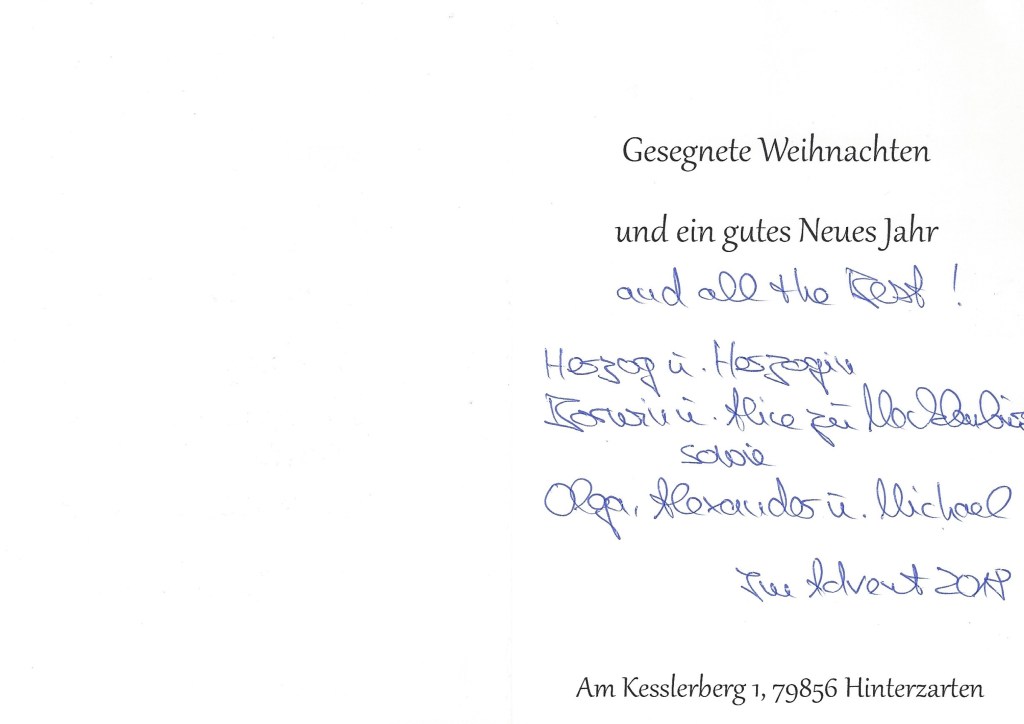 Gesegnete Weihnachten
und ein gutes Neues Jahr
and all the Best !
Herzog u. Herzogin
Borwin u. Alice zu Mecklenburg
sowie
Olga, Alexander u. Michael
Im Advent 2018
Am Kesslerberg 1, 79856 Hinterzarten